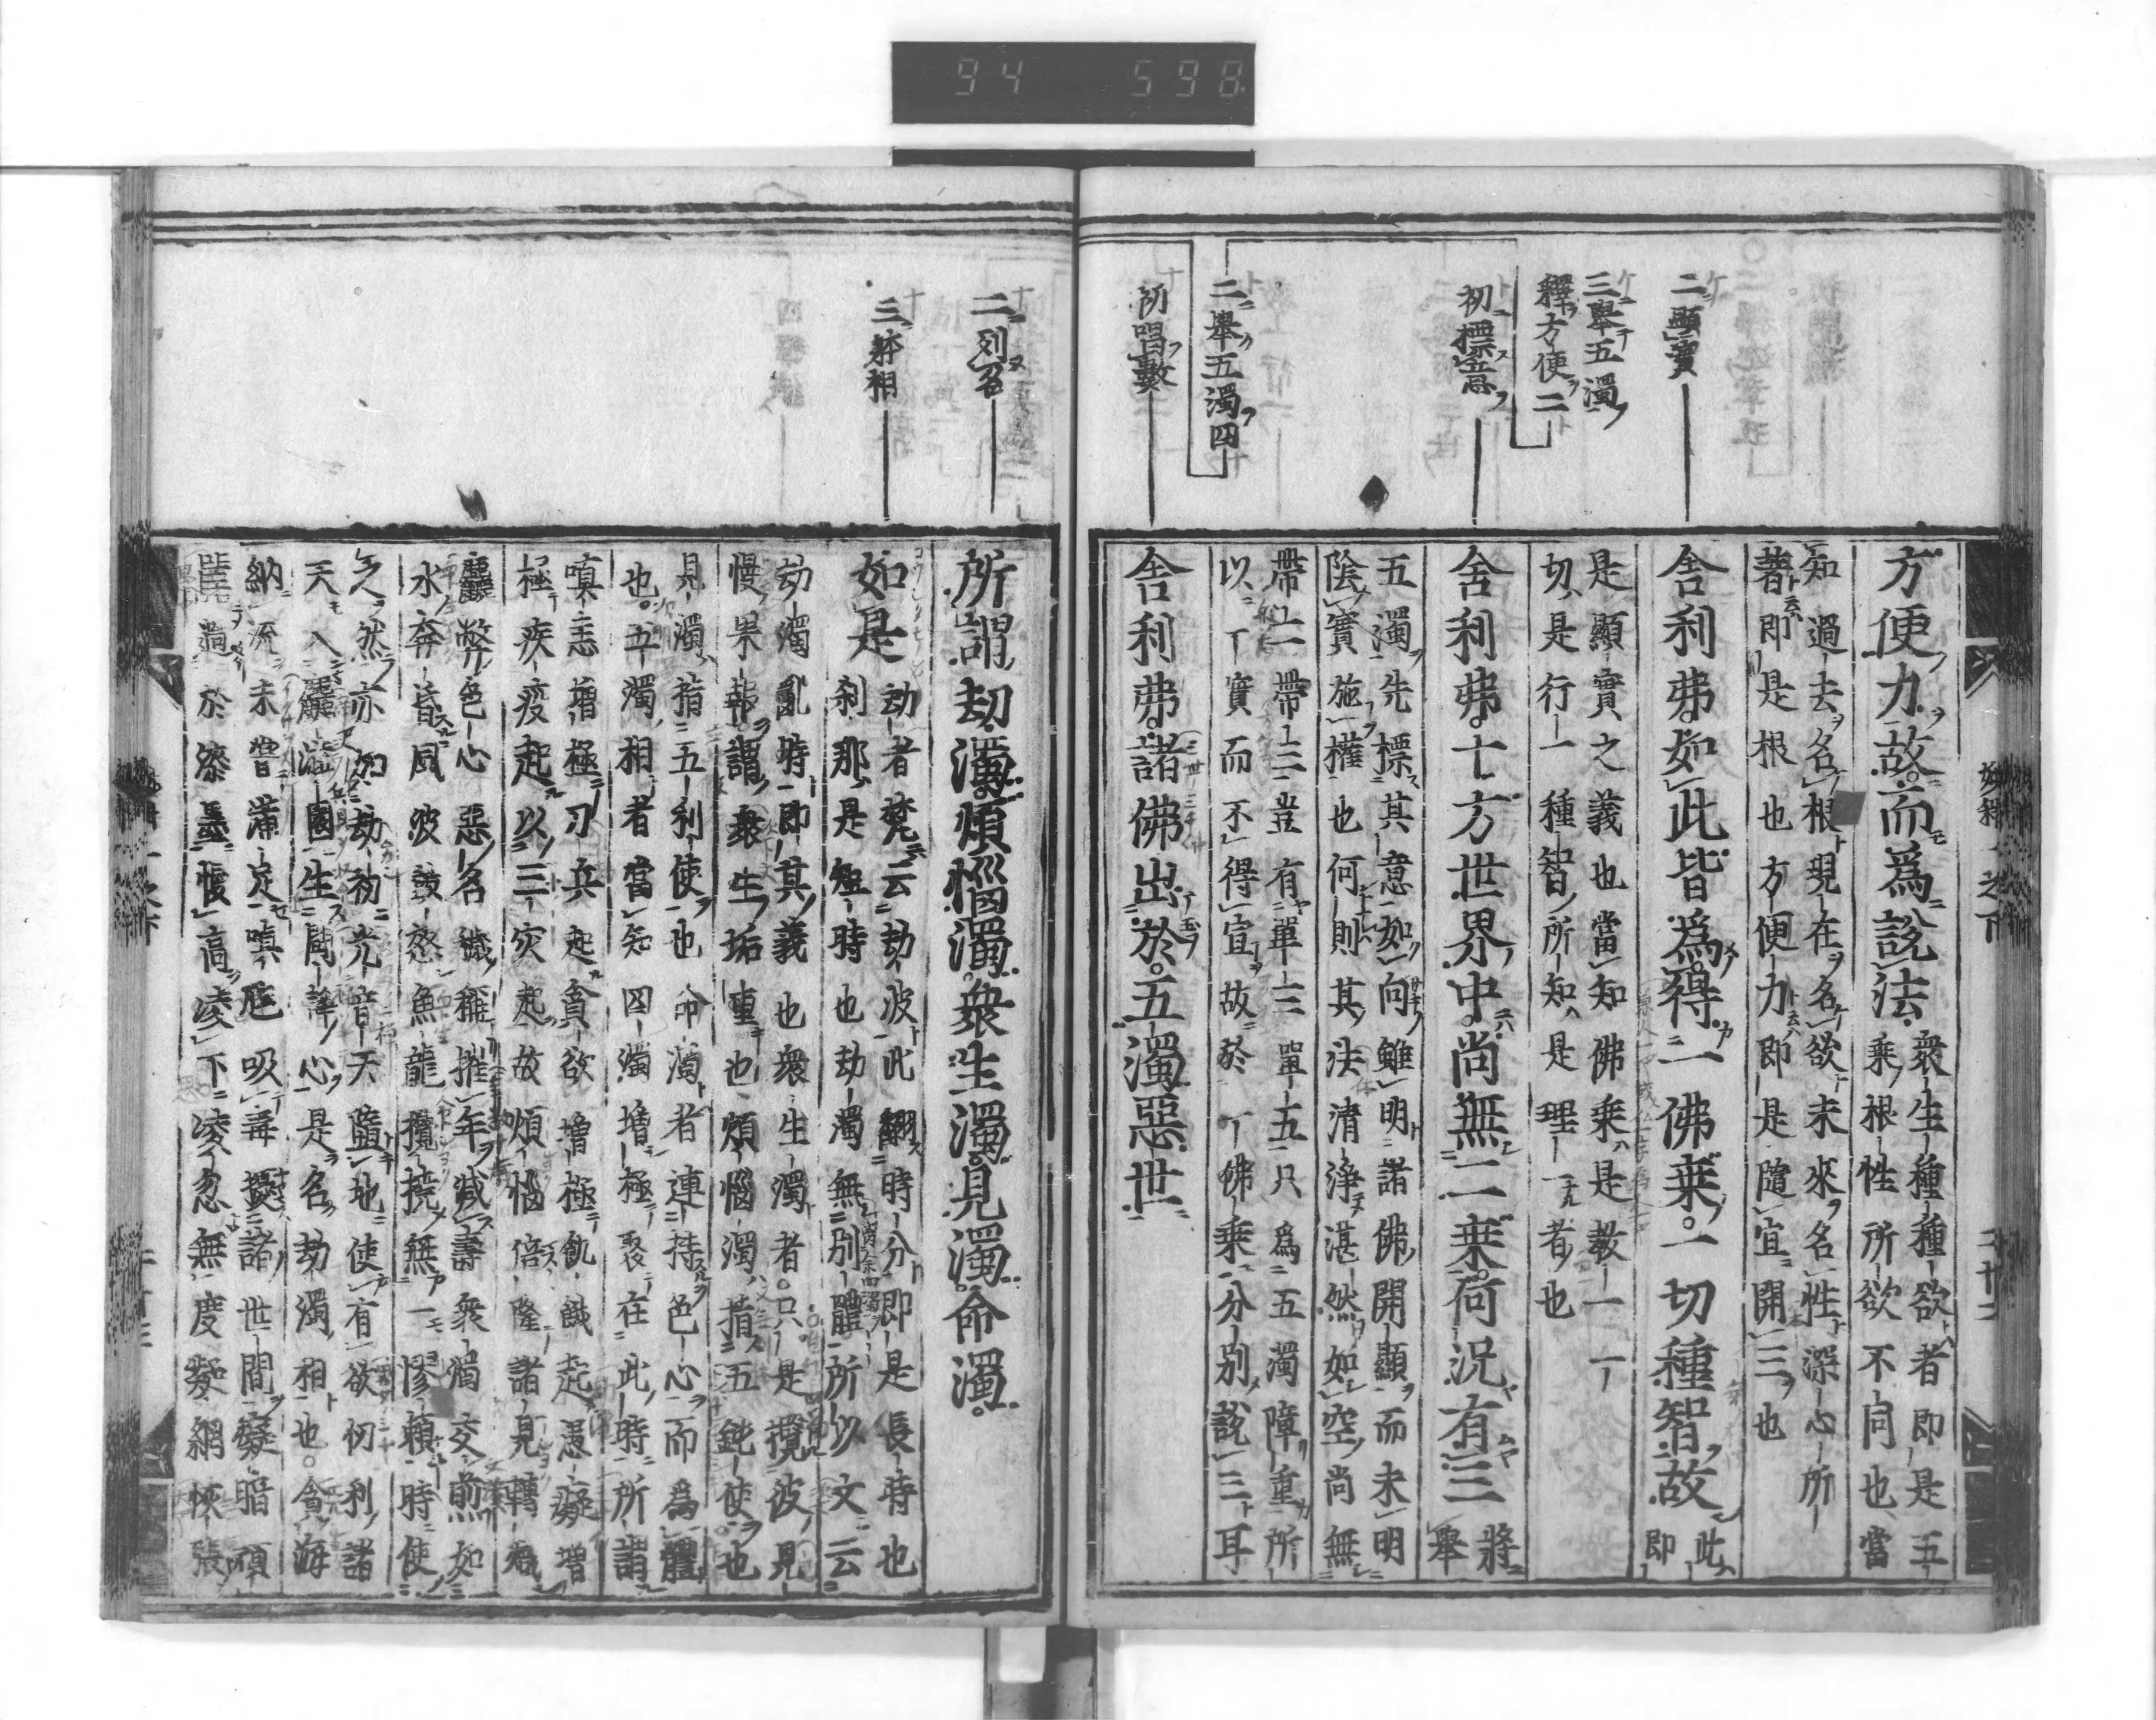 94 598
二顯實
三舉五濁
釋方便二
初標意
二舉五濁四
初唱數
方便力故而爲說法
衆生種種欲者即是五
乘根性所欲不同也當
知過去名根現在名欲未來名性深心所
著即是根也方便力即是隨宜開三也
舍利弗如此皆爲得一佛乘一切種智故
此
即
是顯實之義也當知佛乘是教一一
切是行一種智所知是理一者也
舍利弗十方世界中尚無二乘何況有三
將
舉
五濁先標其意如向雖明諸佛開顯而未明
隂實施權也何則其法清淨湛然如空尚無
帶二帶三豈有單三單五只爲五濁障重所
以丁實而不得宣故於一佛乘分別說三耳
舍利弗諸佛出於五濁惡世
妙釋一之下
二十二
二列名
三釋相
所謂劫濁煩惱濁衆生濁見濁命濁
如是
劫者梵云劫波此翻時分即是長時也
刹那是短時也劫濁無別體所以文云
劫濁亂時即其義也衆生濁者只是攬彼見
慢果報謂衆生垢重也煩惱濁指五鈍使也
見濁指五利使也命濁者連持色心而爲體
也五濁相者當知四濁增極聚在此時所謂
嗔恚增極刀兵起貪欲增極飢餓起愚癡增
極疾疫起以三灾起故煩惱倍隆諸見轉熾
麤弊色心惡名穢稱摧年減壽衆濁交煎如
水奔昏風波鼓怒魚龍攪撓無一憀賴時使
之然亦如劫初光音天墮地使有欲初利諸
天入麤澁園生鬪諍心是名劫濁相也貪海
納流未曾滿足嗔虺吸毒撓諸世間癡暗頑
嚚過於漆墨慢高凌下凌忽無度疑網恢張